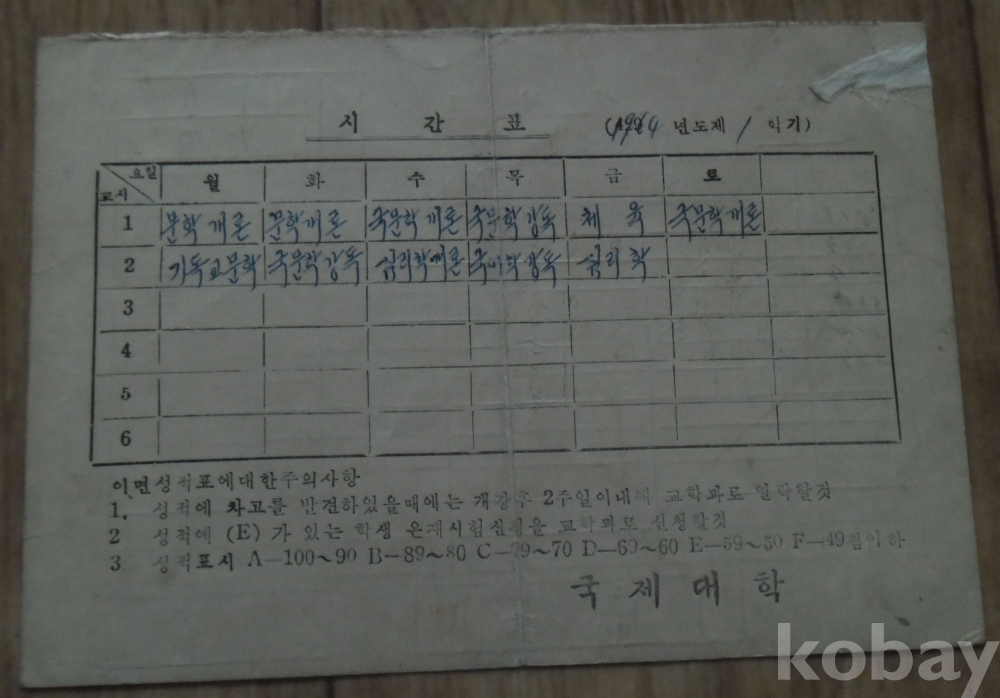 시간표 ( 년도제 1 학기)
요일 월 화 수 목 금 토
교시
1 문학개론 문학개론 국문학개론 국문학강독 체육 국문학개론
2 기독교문학 국문학강독 심리학개론 국문학강독 심리학
3
4
5
6
이면성적표에대한주의사항
1. 성적에 차고를 발견하있을때에는 개강후 2주일이내에 교학과로 연락할것
2 성적에 (E)가 있는 학생은재시험신청을 교학과로 신청할것
3 성적표시 A—100~90 B—89~80 C—79~70 D—69~60 E—59~50 F—49점이하
국제대학
kobay